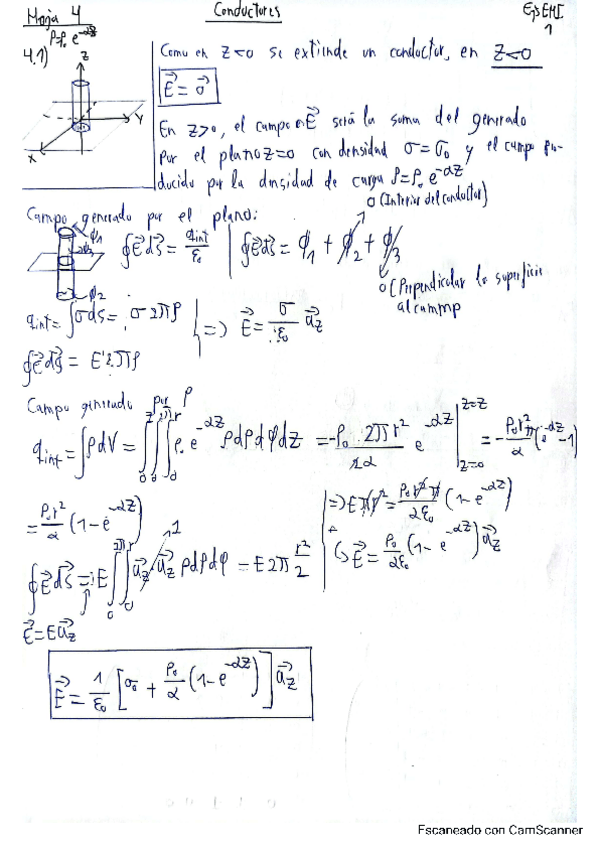 Hoja 4
Conductores
Ejs EMI
1
ρ=ρ₀ e^-αz
4.1)
Z
Y
X
Como en z<0 se extiende un conductor, en z<0
E⃗ = 0⃗
En z>0, el campo E⃗ será la suma del generado
por el plano z=0 con densidad σ=σ₀ y el campo pro-
ducido por la densidad de carga ρ=ρ₀ e^-αz
Campo generado por el plano:
0 (Interior del conductor)
∮E⃗ds⃗ = qint/ε₀ | ∮E⃗ds⃗ = ϕ₁ + ϕ₂ + ϕ₃
ϕ₁
ϕ₃
ϕ₂
0 (Perpendicular la superficie
al campo
qint = ∫σds = σ 2πρ
=> E⃗ = σ/ε₀ a⃗z
∮E⃗ds⃗ = E 2πρ
Campo generado por ρ
qint = ∫ρdV = ∫₀^z ∫₀^2π ∫₀^r ρ₀ e^-αz ρdρdφdz = -ρ₀ 2πr²/2α e^-αz |z=0 z=z = -ρ₀r²π/α (e^-αz -1)
= ρ₀r²/α (1-e^-αz)
=> Eπr² = ρ₀r²π/αε₀ (1-e^-αz)
∮E⃗ds⃗ = E ∫₀^2π ∫₀^r a⃗z a⃗z ρdρdφ = E2π r²/2
1
E⃗ = ρ₀/αε₀ (1-e^-αz) a⃗z
E⃗=Ea⃗z
E⃗ = 1/ε₀ [σ₀ + ρ₀/α (1-e^-αz)] a⃗z
Escaneado con CamScanner